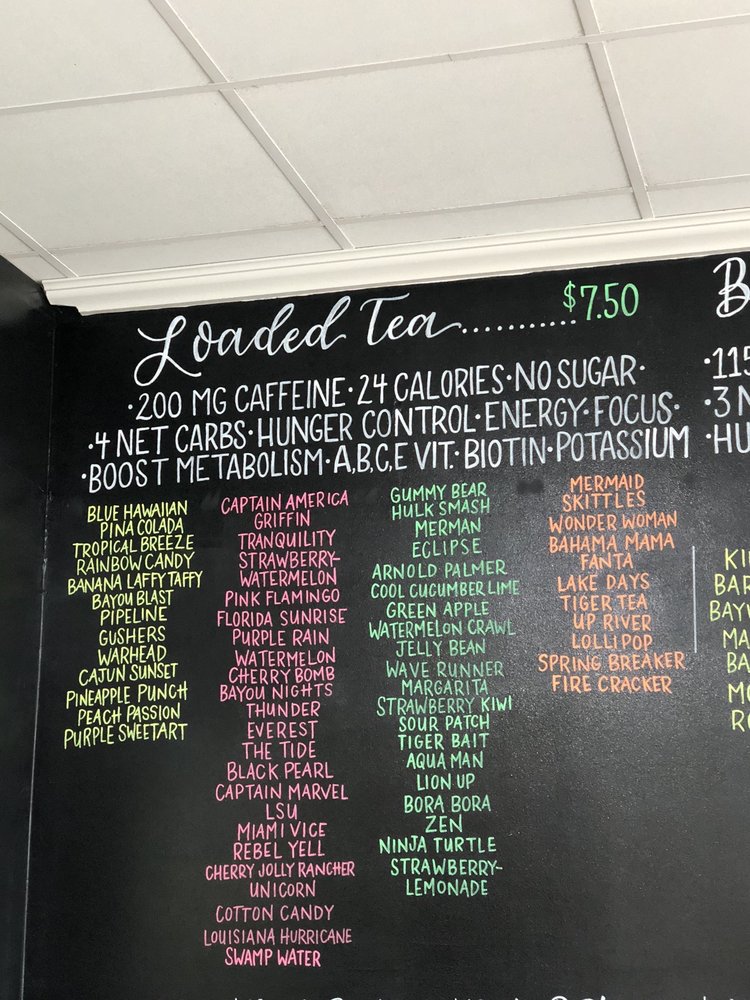 Loaded Tea...........$7.50
·200 MG CAFFEINE·24 CALORIES·NO SUGAR·
·4 NET CARBS·HUNGER CONTROL·ENERGY·FOCUS·
·BOOST METABOLISM·A,B,C,E VIT.·BIOTIN·POTASSIUM
BLUE HAWAIIAN
PINA COLADA
TROPICAL BREEZE
RAINBOW CANDY
BANANA LAFFY TAFFY
BAYOU BLAST
PIPELINE
GUSHERS
WARHEAD
CAJUN SUNSET
PINEAPPLE PUNCH
PEACH PASSION
PURPLE SWEETART
CAPTAIN AMERICA
GRIFFIN
TRANQUILITY
STRAWBERRY-
WATERMELON
PINK FLAMINGO
FLORIDA SUNRISE
PURPLE RAIN
WATERMELON
CHERRY BOMB
BAYOU NIGHTS
THUNDER
EVEREST
THE TIDE
BLACK PEARL
CAPTAIN MARVEL
LSU
MIAMI VICE
REBEL YELL
CHERRY JOLLY RANCHER
UNICORN
COTTON CANDY
LOUISIANA HURRICANE
SWAMP WATER
GUMMY BEAR
HULK SMASH
MERMAN
ECLIPSE
ARNOLD PALMER
COOL CUCUMBER LIME
GREEN APPLE
WATERMELON CRAWL
JELLY BEAN
WAVE RUNNER
MARGARITA
STRAWBERRY KIWI
SOUR PATCH
TIGER BAIT
AQUA MAN
LION UP
BORA BORA
ZEN
NINJA TURTLE
STRAWBERRY-
LEMONADE
MERMAID
SKITTLES
WONDER WOMAN
BAHAMA MAMA
FANTA
LAKE DAYS
TIGER TEA
UP RIVER
LOLLIPOP
SPRING BREAKER
FIRE CRACKER
B
·115
·3 N
·HU
KI
BA
BAY
MA
BA
M
R